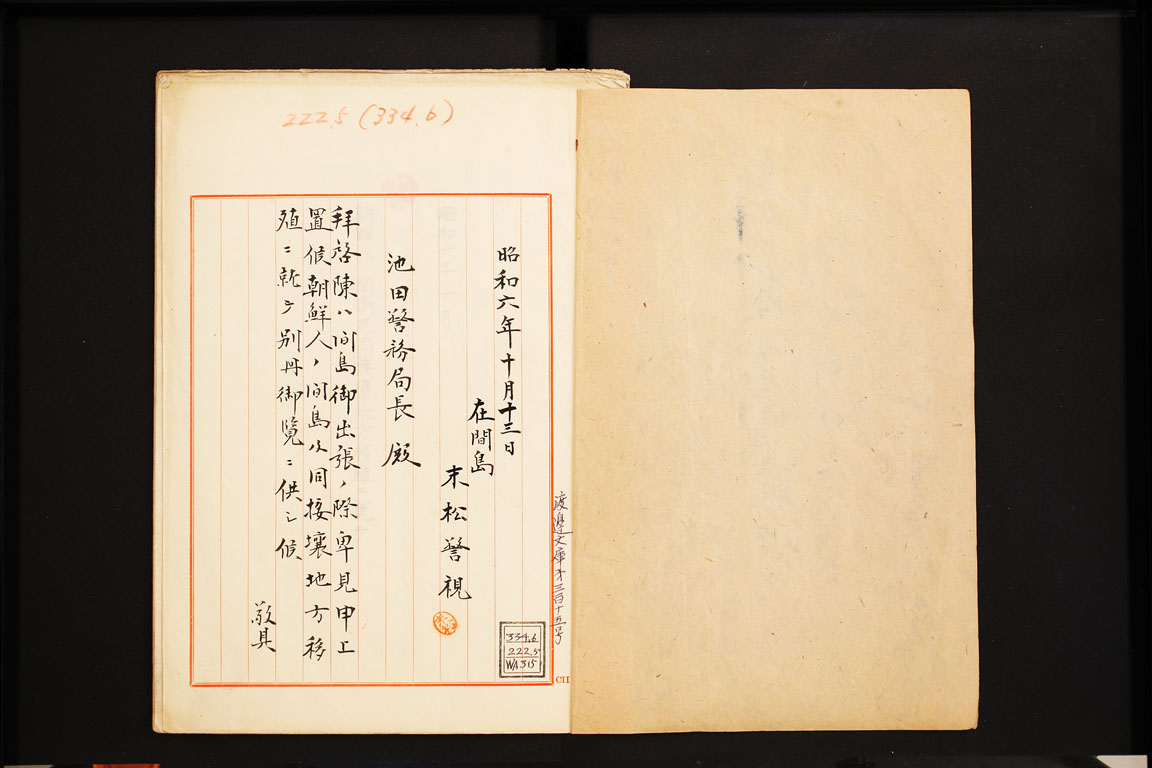 222.5 (334.6)
昭和六年十月十三日
在間島
末松警視
池田警務局長殿
拜啓陳ハ间島御出張ノ際卑見申上
置候朝鮮人ノ间島及同接壤地方移
殖ニ就テ別冊御覽ニ供シ候
敬具
渡邊文庫才三百十五号
334.6
222.5
WA315
CII